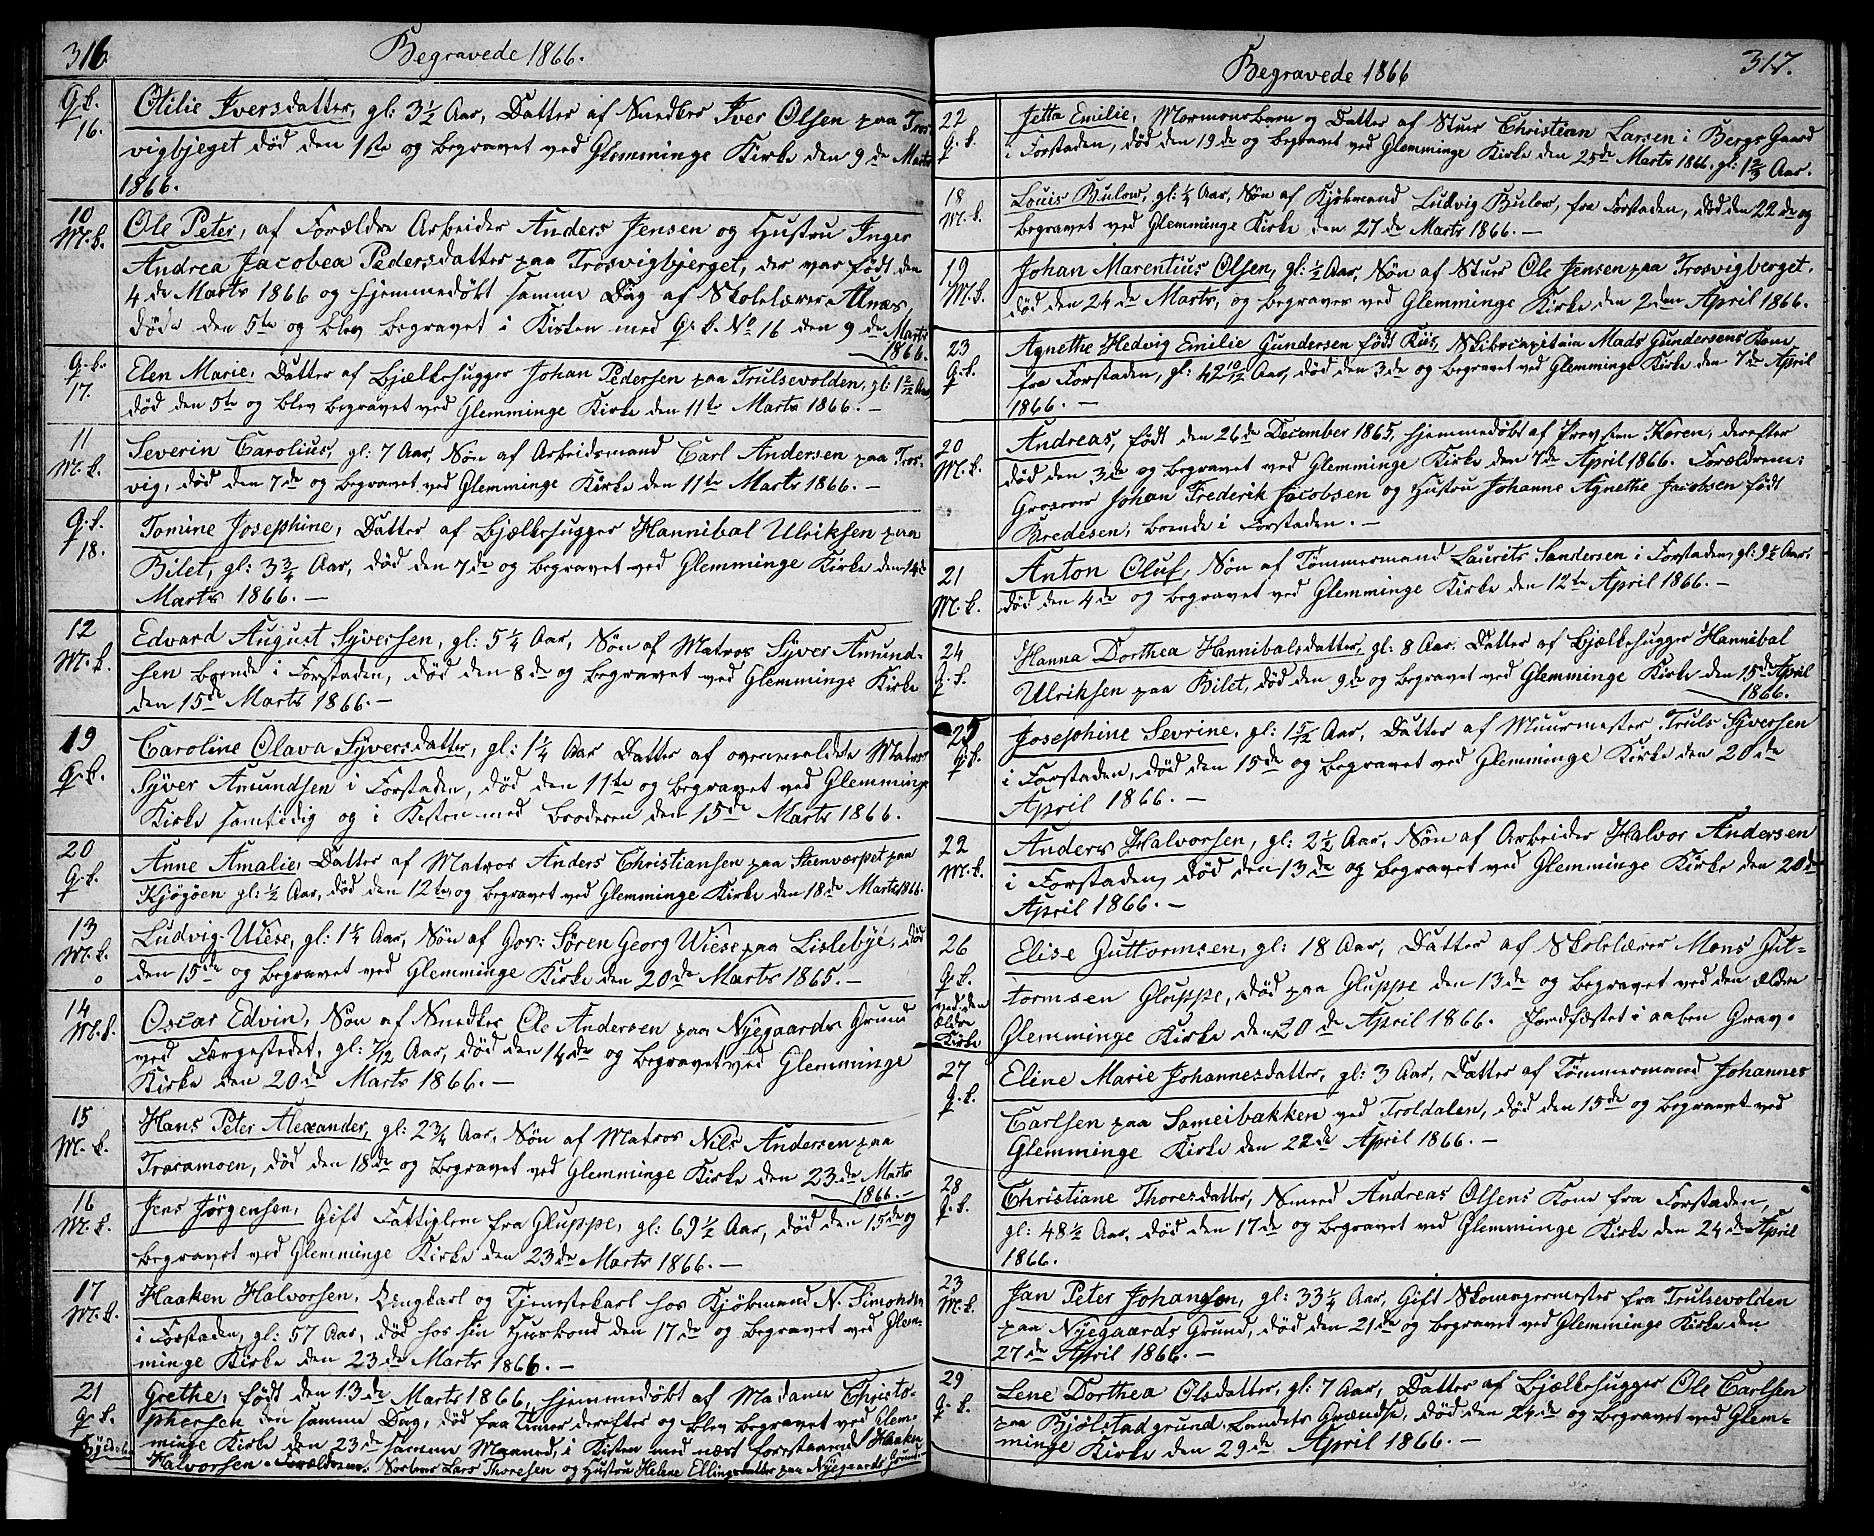 316.
Begravede 1866.
Q.k. 16.
Otilie Iversdatter, gl: 3½ Aar, Datter af Snedker Iver Olsen paa Tros-
vigbjeget død den 1ste og begravet ved Glemminge Kirke den 9de Marts
1866.
10 M.k.
Ole Peter, af Forældre Arbeider Anders Jensen og Hustru Inger
Andrea Jacobea Pedersdatter paa Trosvigbjerget, der var født den
4de Marts 1866 og hjemmedøbt samme Dag af Skolelærer Aanæs,
døde den 5te og blev begravet i Kisten med Q.k. No 16 den 9de Marts
1866.
Q.k. 17.
Elen Marie, Datter af Bjælkehugger Johan Pedersen paa Trulsevolden, gl: 1 2/12 Aar
død den 5te og blev begravet ved Glemminge Kirke den 11te Marts 1866. –
11 M.k.
Severin Carolius, gl: 7 Aar, Søn af Arbeidsmand Carl Andersen paa Tros-
vig, død den 7de og begravet ved Glemminge Kirke den 11te Marts 1866. –
Q.k. 18.
Tomine Josephine, Datter af Bjælkehugger Hannibal Ulriksen paa
Bilet, gl: 3¾ Aar, død den 7de og begravet ved Glemminge Kirke den 14de
Marts 1866. –
12 M.k.
Edvard August Syversen, gl: 5¼ Aar, Søn af Matros Syver Amund-
sen boende i Forstaden, død den 8de og begravet ved Glemminge Kirke
den 15de Marts 1866. –
19 Q.k.
Caroline Olava Syversdatter, gl: 1¼ Aar Datter af ovenmeldte Matros
Syver Amundsen i Forstaden, død den 11te og begravet ved Glemminge
Kirke samtidig og i Kisten med Broderen den 15de Marts 1866.
20 Q.k.
Anne Amalie, Datter af Matros Anders Christiansen paa Stenværpet paa
Kjøgøen gl: ½ Aar, død den 12te og begravet ved Glemminge Kirke den 18de Marts 1866.
13 M.k.
Ludvig Wiese, gl: 1¼ Aar, Søn af Gov: Søren Georg Wiese paa Lislebye, død
den 15de og begravet ved Glemminge Kirke den 20de Marts 1865. –
14 M.k.
Oscar Edvin, Søn af Snedker Ole Andersen paa Nyegaards Grund
ved Færgestedet, gl: 7/12 Aar, død den 14de og begravet ved Glemminge
Kirke den 20de Marts 1866. –
15 M.k.
Hans Peter Alexander, gl: 2¾ Aar, Søn af Matros Nils Andersen paa
Traramoen, død den 18de og begravet ved Glemminge Kirke den 23de Marts
1866. –
16 M.k.
Jens Jørgensen, Gift Fattiglem fra Gluppe, gl: 69½ Aar, død den 15de og
begravet ved Glemminge Kirke den 23de Marts 1866. –
17 M.k.
Haaken Halvorsen, Ungkarl og Tjenestekarl hos Kjøbmand N. Simonsen
i Forstaden, gl: 57 Aar, død hos sin Huusbond den 17de og begravet ved Glem-
minge Kirke den 23de Marts 1866. –
21 Q.k.
Grethe, født den 13de Marts 1866, hjemmedøbt af Madame Christo-
phersen den samme Dag, død faa Timer derefter og blev begravet ved Glem-
minge Kirke den 23de samme Maaned, i Kisten med næst forestaaende Haaken
Halvorsen. Forældrene: Lars Thoresen og Hustru Helene Ellingsdatter paa Nyegaards Grund.
Begravede 1866
317.
22 Q.k.
Jetta Emilie, Mormonsbarn og Datter af Stuer Christian Larsen i Bergs Gaard
i Forstaden, død den 19de og begravet ved Glemminge Kirke den 25de Marts 1866, gl: 1⅔ Aar.
18 M.k.
Louis Bulow, gl: ¼ Aar, Søn af Kjøbmand Ludvig Bulow, fra Forstaden, død den 22de og
begravet ved Glemminge Kirke den 27de Marts 1866. –
19 M.k.
Johan Marentius Olsen, gl: ½ Aar, Søn af Stuer Ole Jensen paa Trosvigberget,
død den 24de Marts, og begraves ved Glemminge Kirke den 2den April 1866.
23 Q.k.
Agnethe Hedvig Emilie Gundersen født Kiis, Skibscapitain Mads Gundersens Kone
fra Forstaden, gl: 42 10/12 Aar, død den 3de og begravet ved Glemminge Kirke den 7de April
1866. –
20 M.k.
Andreas, født den 26de December 1865, hjemmedøbt af Provsten Koren, derefter
død den 3de og begravet ved Glemminge Kirke den 7de April 1866. Forældrene:
Grosserer Johan Frederik Jacobsen og Hustru Johanne Agnethe Jacobsen født
Bredesen, boende i Forstaden. –
21 M.k.
Anton Oluf, Søn af Tømmermand Laurits Sandersen i Forstaden, gl: 9½ Aar,
død den 4de og begravet ved Glemminge Kirke den 12te April 1866. –
24 Q.k.
Hanna Dorthea Hannibalsdatter, gl: 8 Aar, Datter af Bjælkehugger Hannibal
Ulriksen paa Bilet, død den 9de og begravet ved Glemminge Kirke den 15de April
1866.
25 Q.k.
Josephine Sevrine, gl: 1 5/12 Aar, Datter af Muurmester Truls Syversen
i Forstaden, død den 15de og begravet ved Glemminge Kirke den 20de
April 1866. –
22 M.k.
Anders Halvorsen, gl: 2½ Aar, Søn af Arbeider Halvor Andersen
i Forstaden, død den 13de og begravet ved Glemminge Kirke den 20de
April 1866. –
26 Q.k. ved den ældre Kirke
Elise Guttormsen, gl: 18 Aar, Datter af Skolelærer Mons Gut-
tormsen Gluppe, død paa Gluppe den 13de og begravet ved den ældre
Glemminge Kirke den 20de April 1866. Jordfæstet i aaben Grav.
27 Q.k.
Eline Marie Johannesdatter, gl: 3 Aar, Datter af Tømmermand Johannes
Carlsen paa Sameibakken ved Troldalen, død den 15de og begravet ved
Glemminge Kirke den 22de April 1866. –
28 Q.k.
Christiane Thoresdatter, Smeed Andreas Olsens Kone fra Forstaden,
gl: 48½ Aar, død den 17de og begravet ved Glemminge Kirke den 24de April
1866.
23 M.k.
Jan Peter Johansen, gl: 33¼ Aar, Gift Skomagermester fra Trulsevolden
paa Nyegaards Grund, død den 21de og begravet ved Glemminge Kirke den
27de April 1866. –
29 Q.k.
Lene Dorthea Olsdatter, gl: 7 Aar, Datter af Bjælkehugger Ole Carlsen
paa Bjølstadgrund Landets Grændse, død den 24de og begravet ved Glem-
minge Kirke den 29de April 1866. –